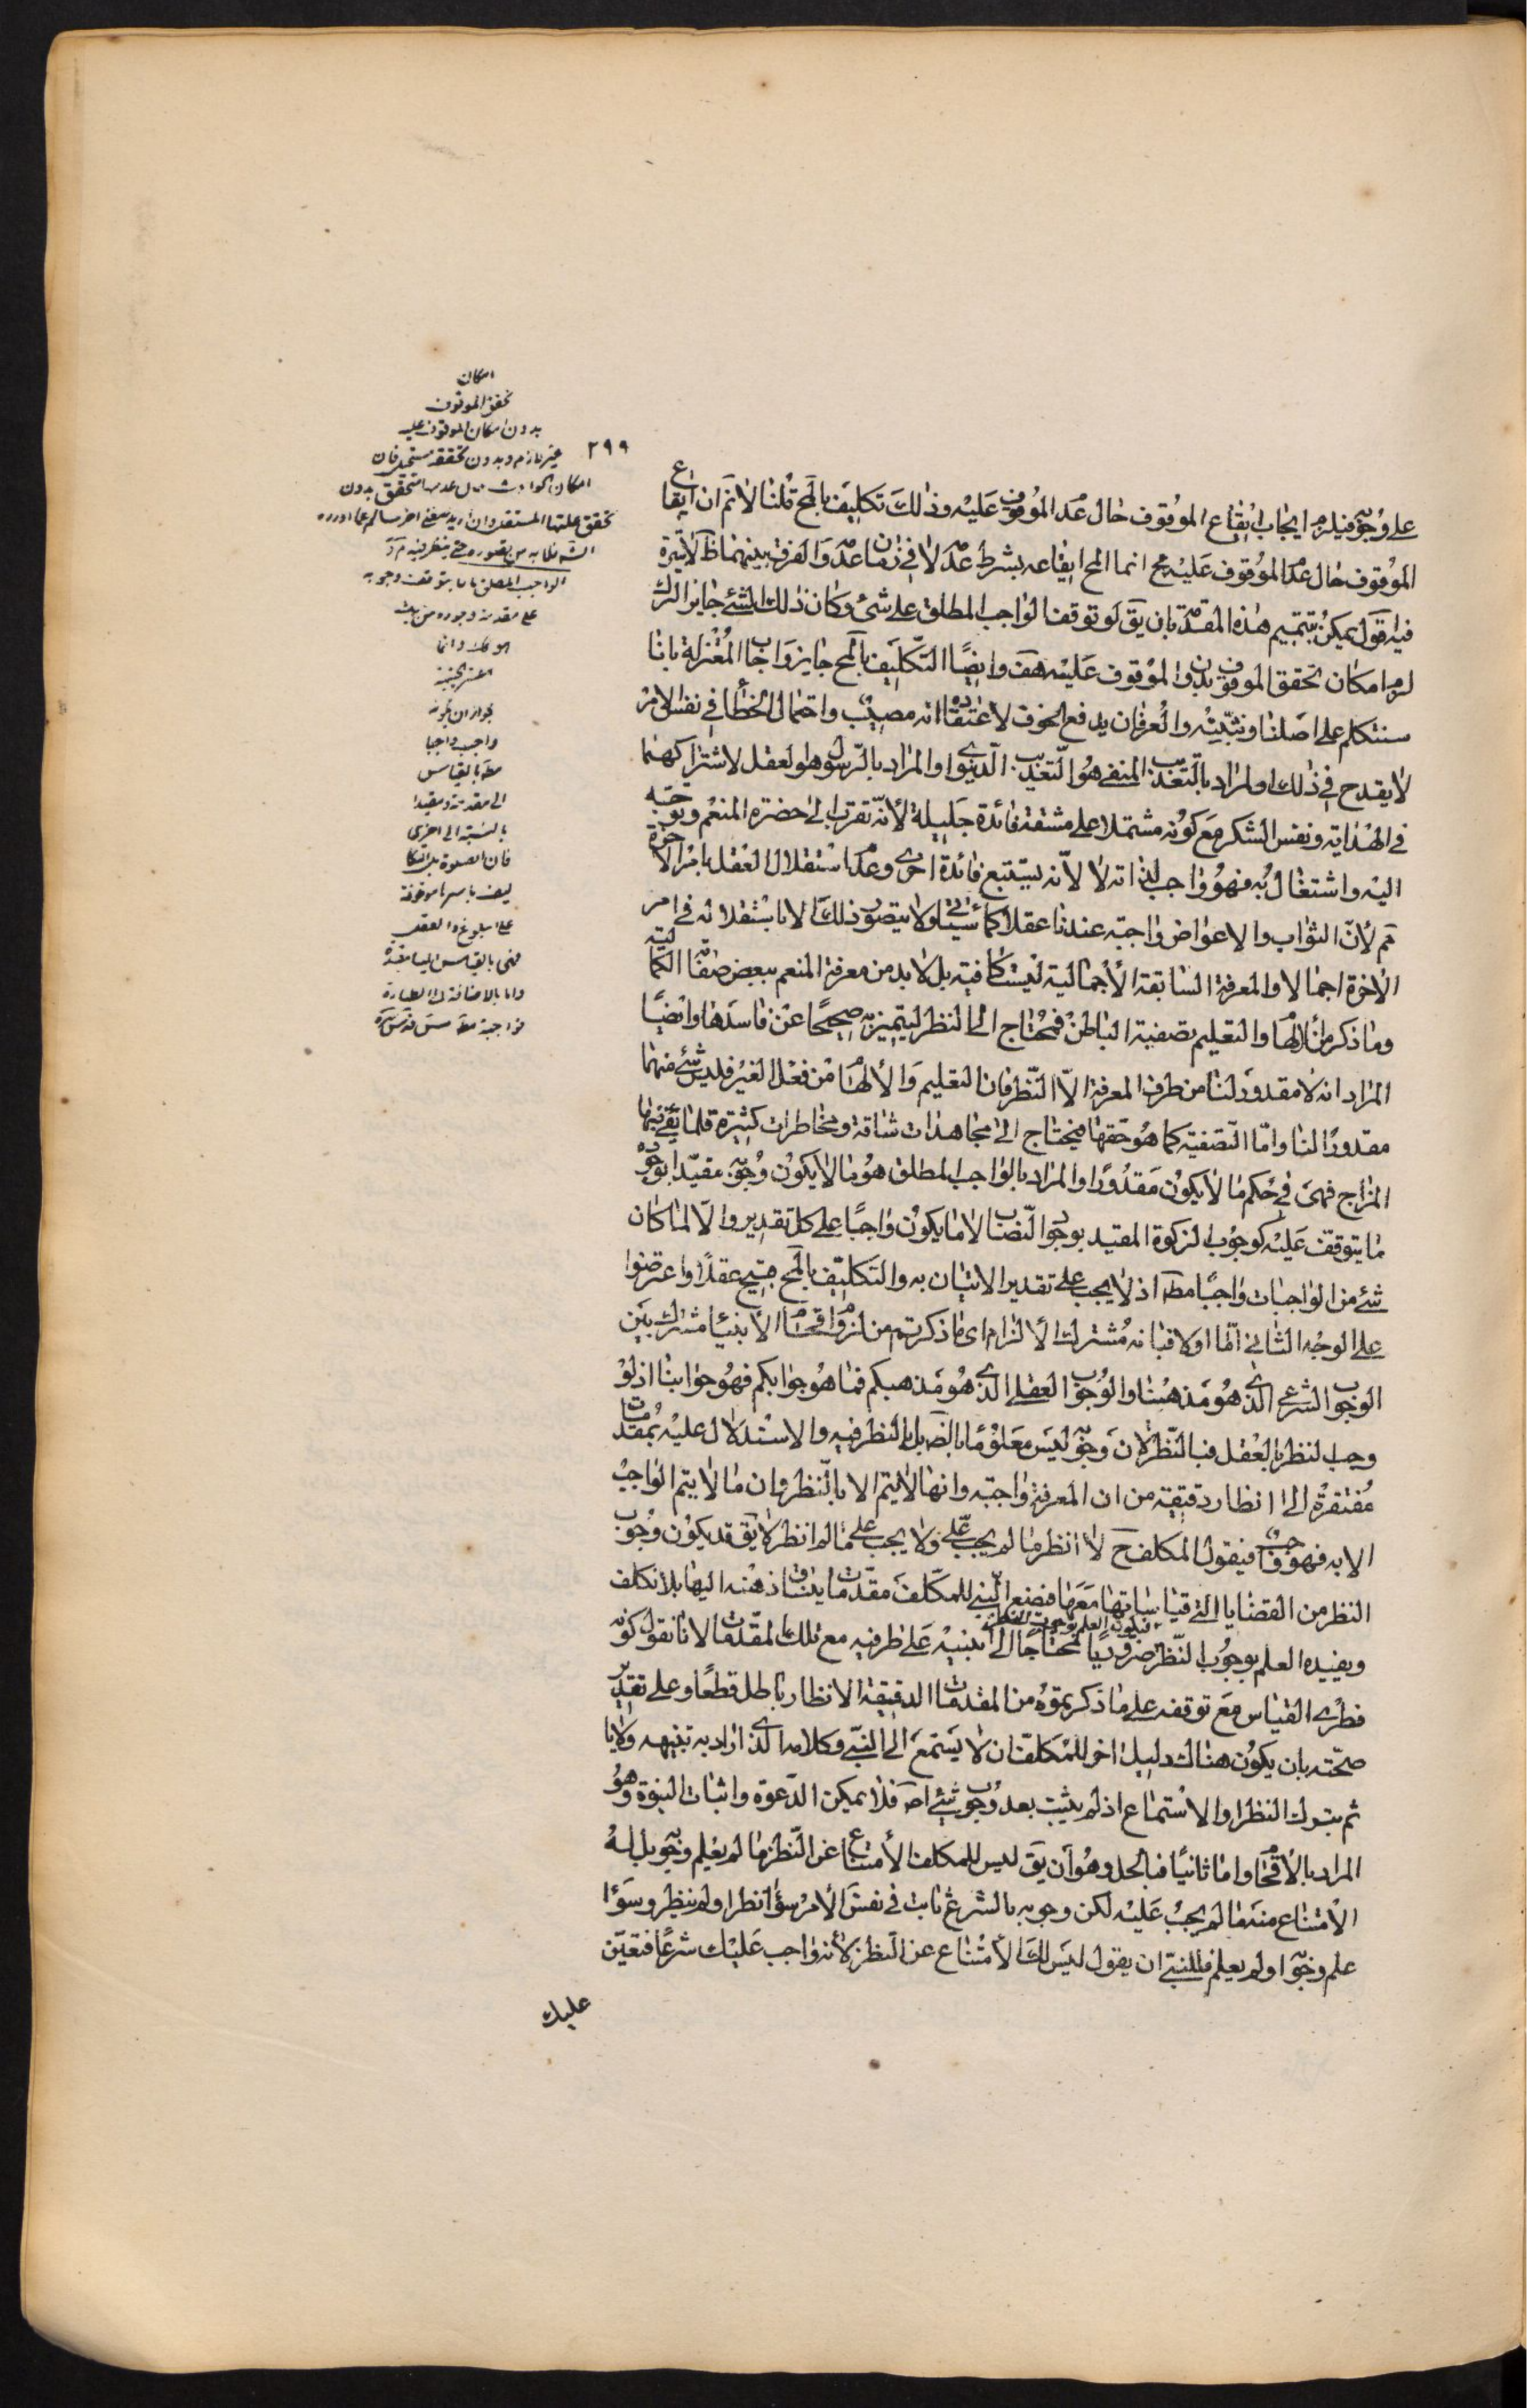 ٢٩٩
على وجوبه فيلزم ايجاب ايقاع الموقوف حال عدم الموقوف عليه وذلك تكليف بالمح قلنا لانم ان ايقاع
الموقوف حال عدم الموقوف عليه مح انما المح ايقاعه بشرط عدمه لا في زمان عدمه والفرق بينهما ظ لاسترة
فيه اقول يمكن تتميم هذه المقدمة بان يق لو توقف الواجب المطلق على شئ وكان ذلك الشئ جايز الترك
لزم امكان تحقق الموقوف بدون الموقوف عليه هف وايضًا التكليف بالمح جايز واجاب المعتزلة بانا
سنتكلم على اصلنا ونثبته والعرفان يدفع الخوف لاعتقاده انه مصيب واحتمال الخطأ في نفس الامر
لا يقدح في ذلك والمراد بالتعذيب المنفى هو التعذيب الدنيوى او المراد بالرسول هو العقل لاشتراكهما
فى الهداية ونفس الشكر مع كونه مشتملا على مشقة فائدة جليلة لأنه تقرب الى حضرة المنعم وتوجه
اليه واشتغال به فهو واجب لذاته لا لانه يستتبع فائدة اخرى وعدم استقلال العقل بامر الآخرة
مم لأن الثواب والاعواض واجبة عندنا عقلا كما سيأتى ولا يتصور ذلك الا باستقلاله فى امر
الآخرة اجمالا والمعرفة السابقة الأجمالية ليست كافية بل لا بد من معرفة المنعم ببعض صفاته الكمالية
وما ذكر من الالهام والتعليم وتصفية الباطن فمحتاج الى النظر ليتميز به صحيحًا عن فاسدها وايضًا
المراد انه لا مقدور لنا من طرق المعرفة الا النظر فان التعليم والألهام من فعل الغير فليس شئ منهما
مقدورًا لنا واما التصفية كما هو حقها فيحتاج الى مجاهدات شاقة ومخاطرات كثيرة قلما يفى بها
المزاج فهى فى حكم ما لا يكون مقدورًا والمراد بالواجب المطلق هو ما لا يكون وجوبه مقيدا بوجود
ما يتوقف عليه كوجوب الزكوة المقيد بوجود النصاب لا ما يكون واجبًا على كل تقدير والا لما كان
شئ من الواجبات واجبًا مطلقا اذ لا يجب على تقدير الاتيان به والتكليف بالمح قبيح عقلًا واعترضوا
على الوجه الثانى اما اولا فبانه مشترك الالزام اى ما ذكرتم من لزوم افحام الأنبياء مشترك بين
الوجوب الشرعى الذى هو مذهبنا والوجوب العقلى الذى هو مذهبكم فما هو جوابكم فهو جوابنا اذ لو
وجب النظر بالعقل فبالنظر لان وجوبه ليس معلومًا بالضرورة بل بالنظر فيه والاستدلال عليه بمقدمات
مفتقرة الى انظار دقيقة من ان المعرفة واجبة وانها لا يتم الا بالنظر وان ما لا يتم الواجب
الا به فهو واجب فيقول المكلف ح لا انظر ما لم يجب على ولا يجب على ما لم انظر لا يق قد يكون وجوب
النظر من القضايا التى قياساتها معها فيضع النبى للمكلف مقدمات ينساق ذهنه اليها بلا تكلف
ويفيده العلم بوجوب النظر ضروريًا فيكون العلم بوجوب النظر محتاجًا الى تنبيه على طرفيه مع تلك المقدمات لانا نقول كونه
فطرى القياس مع توقفه على ما ذكرتموه من المقدمات الدقيقة الانظار باطل قطعًا وعلى تقدير
صحته بان يكون هناك دليل اخر للمكلف ان لا يستمع الى النبى وكلامه الذى اراد به تنبيهه ولا يأ
ثم بترك النظر او الاستماع اذ لم يثبت بعد وجوب شئ اصلا فلا يمكن الدعوة واثبات النبوة وهو
المراد بالأفحام واما ثانيًا فبالحل وهو ان يق ليس للمكلف الأمتناع عن النظر ما لم يعلم وجوبه بل له
الأمتناع منه ما لم يجب عليه لكن وجوبه بالشرع ثابت فى نفس الأمر سواء نظر او لم ينظر وسواء
علم وجوبه او لم يعلم فللنبى ان يقول ليس لك الأمتناع عن النظر لأنه واجب عليك شرعًا فتعين
عليك
امكان
تحقق الموقوف
بدون امكان الموقوف عليه
غير لازم وبدون تحققه مستحيل فان
على مقدمة وجوده من تلك
بجواز ان يكون
واجب واجبا
مط بالقياس
الى مقدمة ومقيدا
بالنسبة الى اخرى
فان الصلوة بل التكا
ليف باسرها موقوفة
على البلوغ والعقل
فهى بالقياس اليها مقيدة
واما بالاضافة الى الطهارة
فواجبة مط